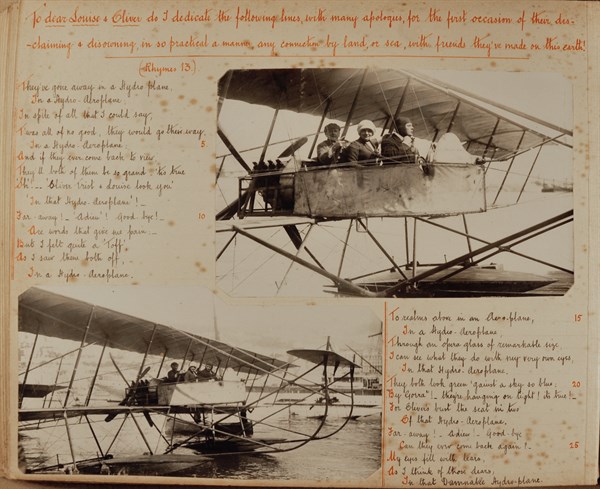 To dear Louise & Oliver do I dedicate the following lines, with many apologies, for the first occasion of their dis-
claiming & disowning, in so practical a manner any connection by land, or sea, with friends they're made on this earth!
(Rhymes 13.)
They've gone away in a Hydro Plane,
In a Hydro-Aeroplane.
In spite of all that I could say,
'Twas all of no good, they would go their way,
In a Hydro-Aeroplane. 5
And if they ever come back to
They'll both of them be so grand, 'tis true
Oh! _ "Oliver & Louise look you"
'In that Hydro-Aeroplane'!_
Far-away!_ 'Adieu'! Good bye!_ 10
Are words that give me pain._
But I felt quite a 'Toff',
As I saw them both off,
In a Hydro-Aeroplane.
To realms above in an Aero-plane, 15
In a Hydro-Aeroplane
Through an opera glass of remarkable size,
I can see what they do with my very own eyes,
In that Hydro-Aeroplane.
They both look green 'gainst a sky so blue, 20
By "Gorra"!_ they're hanging on tight! 'tis true!_
For Oliver's bust the seat in two
Of that Hydro-Aeroplane,
Far-away!_ Adieu_ Good-bye
Can they ever come back again!_ 25
My eyes fill with tears,
As I think of those dears,
In that Damnable Hydro-plane.